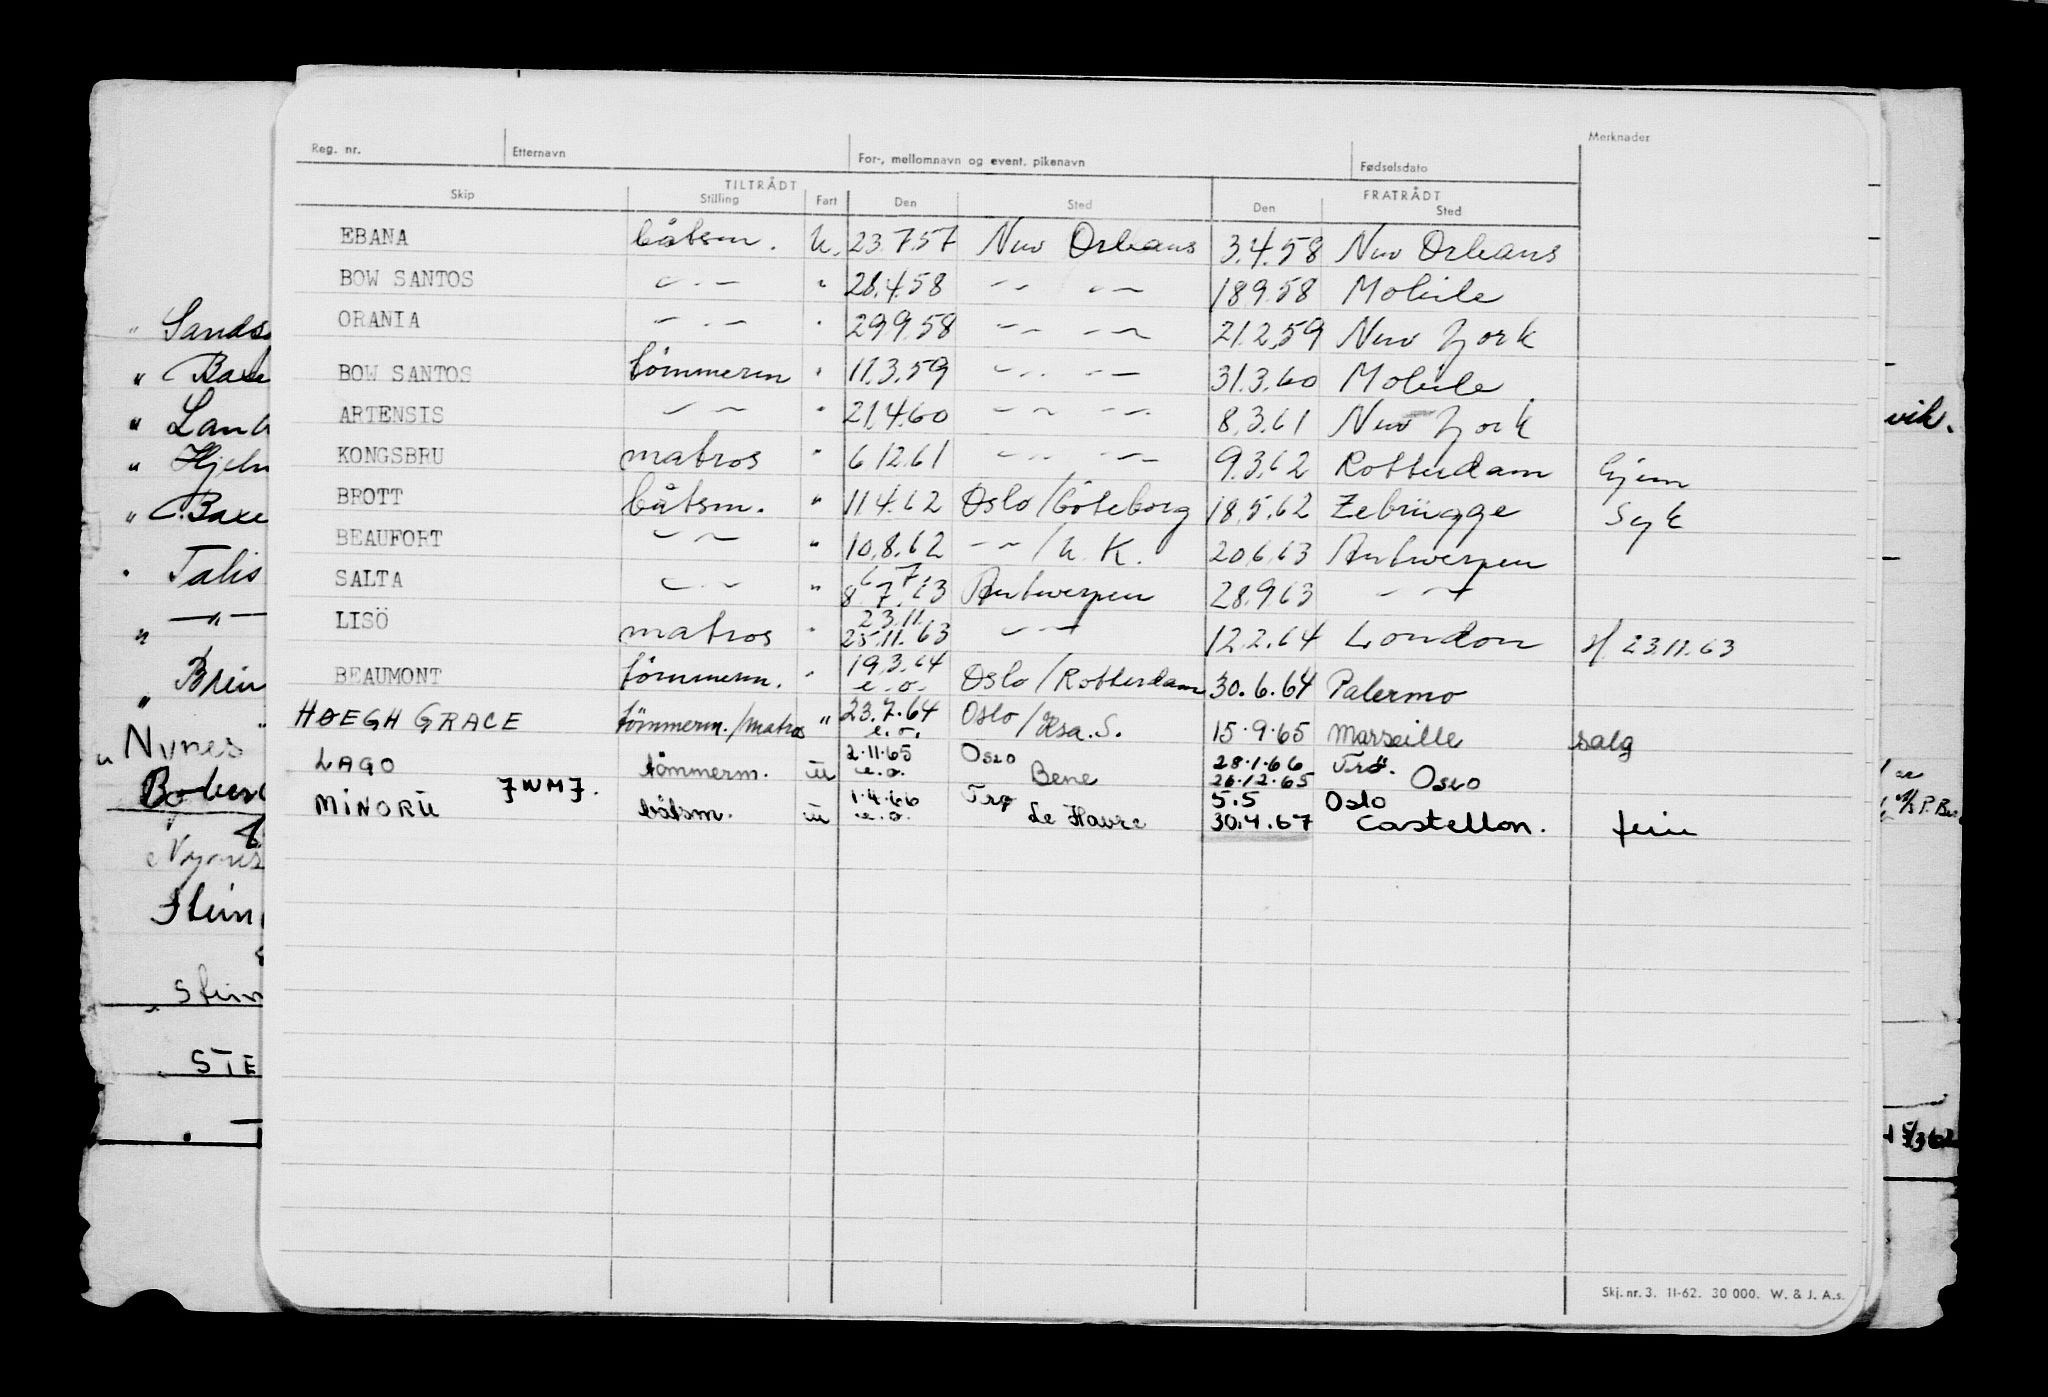 Reg. nr. Etternavn For-, mellomnavn og event. pikenavn Fødselsdato Merknader
TILTRÅDT FRATRÅDT
Skip Stilling Fart Den Sted Den Sted
EBANA båtsm. U. 23.7.57 New Orleans 3.4.58 New Orleans
BOW SANTOS — " — " 28.4.58 — " — 18.9.58 Mobile
ORANIA — " — " 29.9.58 — " — 21.2.59 New York
BOW SANTOS tömmerm " 11.3.59 — " — 31.3.60 Mobile
ARTENSIS — " — " 21.4.60 — " — 8.3.61 New York
KONGSBRU matros " 6.12.61 — " — 9.3.62 Rotterdam hjem
BROTT båtsm. " 11.4.62 Oslo/Göteborg 18.5.62 Zebrügge syk
BEAUFORT — " — " 10.8.62 — " — / U.K. 20.6.63 Antwerpen
SALTA — " — " 6 7
8.7.63 Antwerpen 28.9.63 — " —
LISÖ matros " 23.11.
25.11.63 — " — 12.2.64 London 23.11.63
BEAUMONT tömmerm. " 19.3.64
e.o. Oslo/Rotterdam 30.6.64 Palermo
HØEGH GRACE tömmerm./matros " 23.7.64
e.o. Oslo 15.9.65 Marseille salg
LAGO tömmerm. 2.11.65
e.o. Oslo Bene 28.1.66
26.12.65 Oslo
MINORU JWMJ. båtsm. 1.4.66
e.o. Le Havre 5.5
30.4.67 Oslo
Castellon. ferie
Skj. nr. 3. 11-62. 30 000. W. & J. A.s.
" Sands
" Baxe
" Land
" Hjelm
" Baxe
Talis
— " —
" Brim
" Nynes
Nynes
STE
vik.